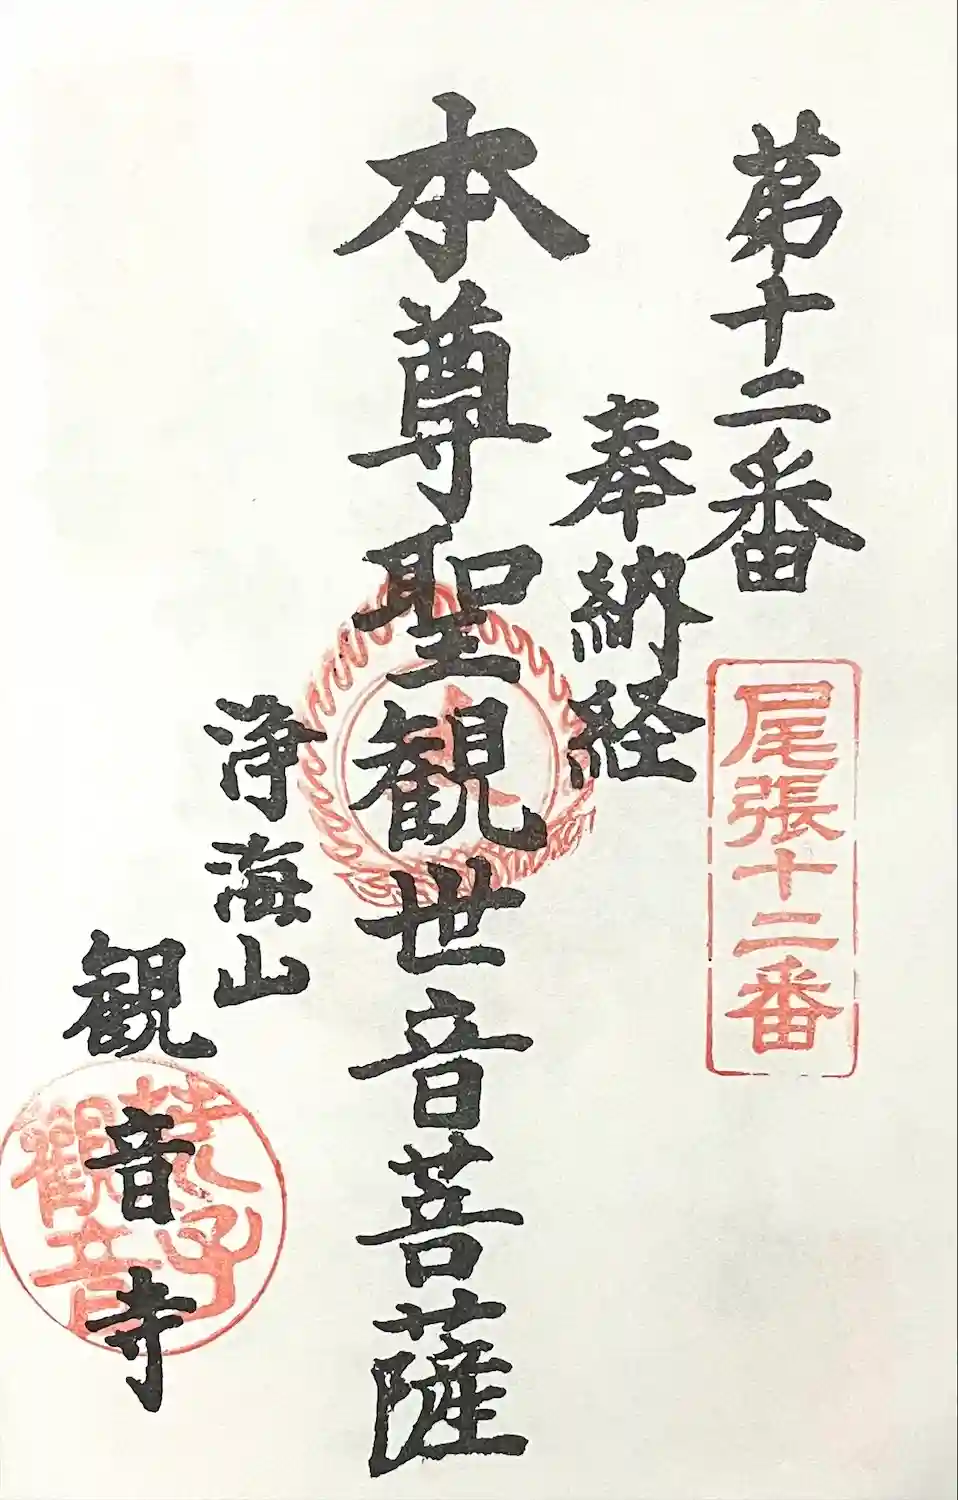 第十二番
尾張十二番
奉納経
本尊聖観世音菩薩
浄海山
観音寺
荒子
觀音